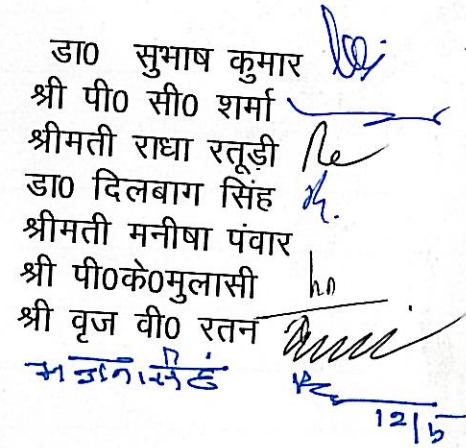 डा0 सुभाष कुमार
श्री पी0 सी0 शर्मा
श्रीमती राधा रतूड़ी
डा0 दिलबाग सिंह
श्रीमती मनीषा पंवार
श्री पी0के0मुलासी
श्री वृज वी0 रतन
12/5